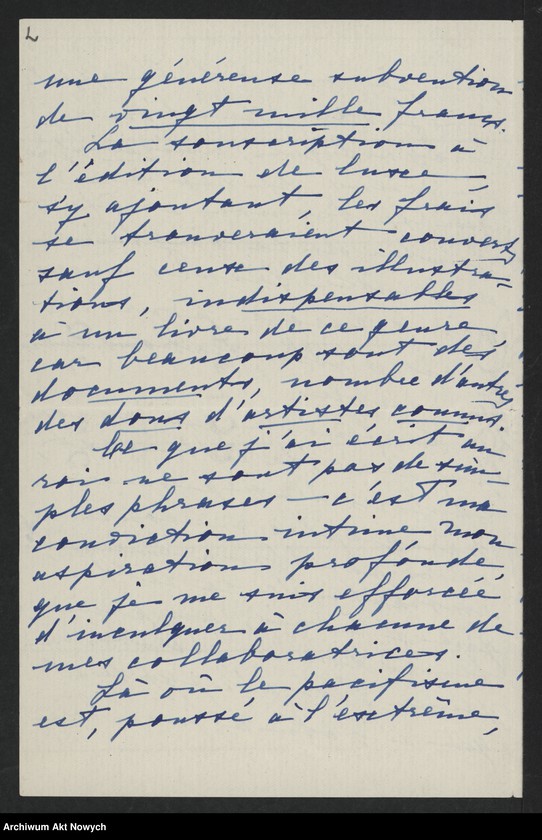 2
une généreuse subvention
de vingt mille francs.
La souscription à
l'édition de luxe
s'y ajoutant, les frais
se trouveraient couverts
sauf ceux des illustra-
tions, indispensables
à un livre de ce genre
car beaucoup sont des
documents, nombre d'autres
des dons d'artistes connus.
Ce que j'ai écrit au
roi ne sont pas de sim-
ples phrases — c'est ma
conviction intime mon
aspiration profonde
que je me suis efforcée
d'inculquer à chacune de
mes collaboratrices.
Là où le pacifisme
est, poussé à l'extrême,
Archiwum Akt Nowych